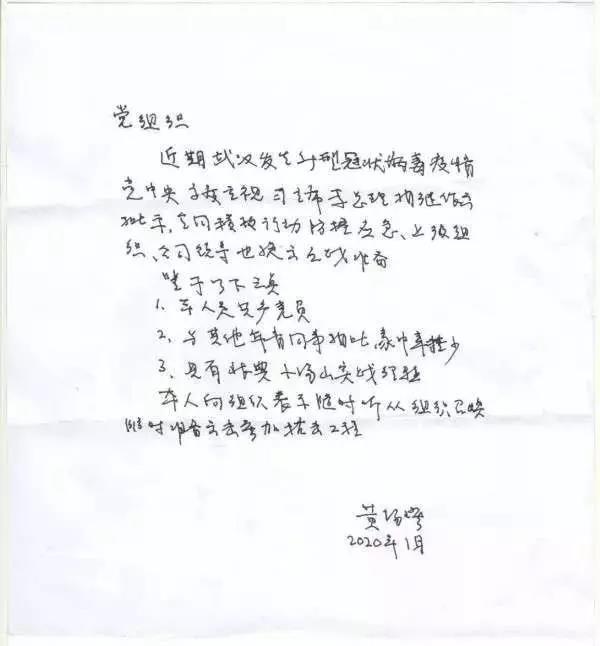 党组织
近期武汉发生新型冠状病毒疫情
党中央高度重视习主席李总理相继作出
批示,全国积极行动防控应急、上级组
织、公司领导也提出了战准备
鉴于以下三点
1. 本人是共产党员
2. 与其他年青同事相比,家中牵挂少
3. 具有北京小汤山实战经验
本人向组织表示随时听从组织召唤
随时准备出击参加抗击工程
黄锡璆
2020年1月